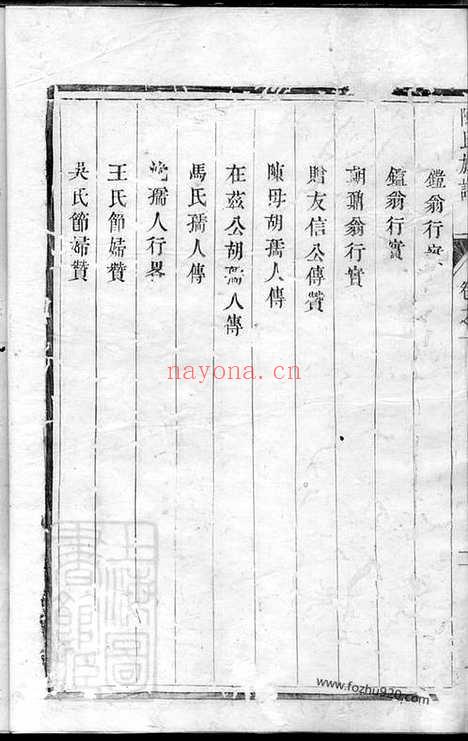 鐙翁行實
鑑翁行實
朝鼐翁行實
財友信公傳贊
陳母胡孺人傳
在茲公胡孺人傳
馬氏孺人傳
孺人行畧
王氏節婦贊
吳氏節婦贊
nayona.cn
www.fozhu920.com